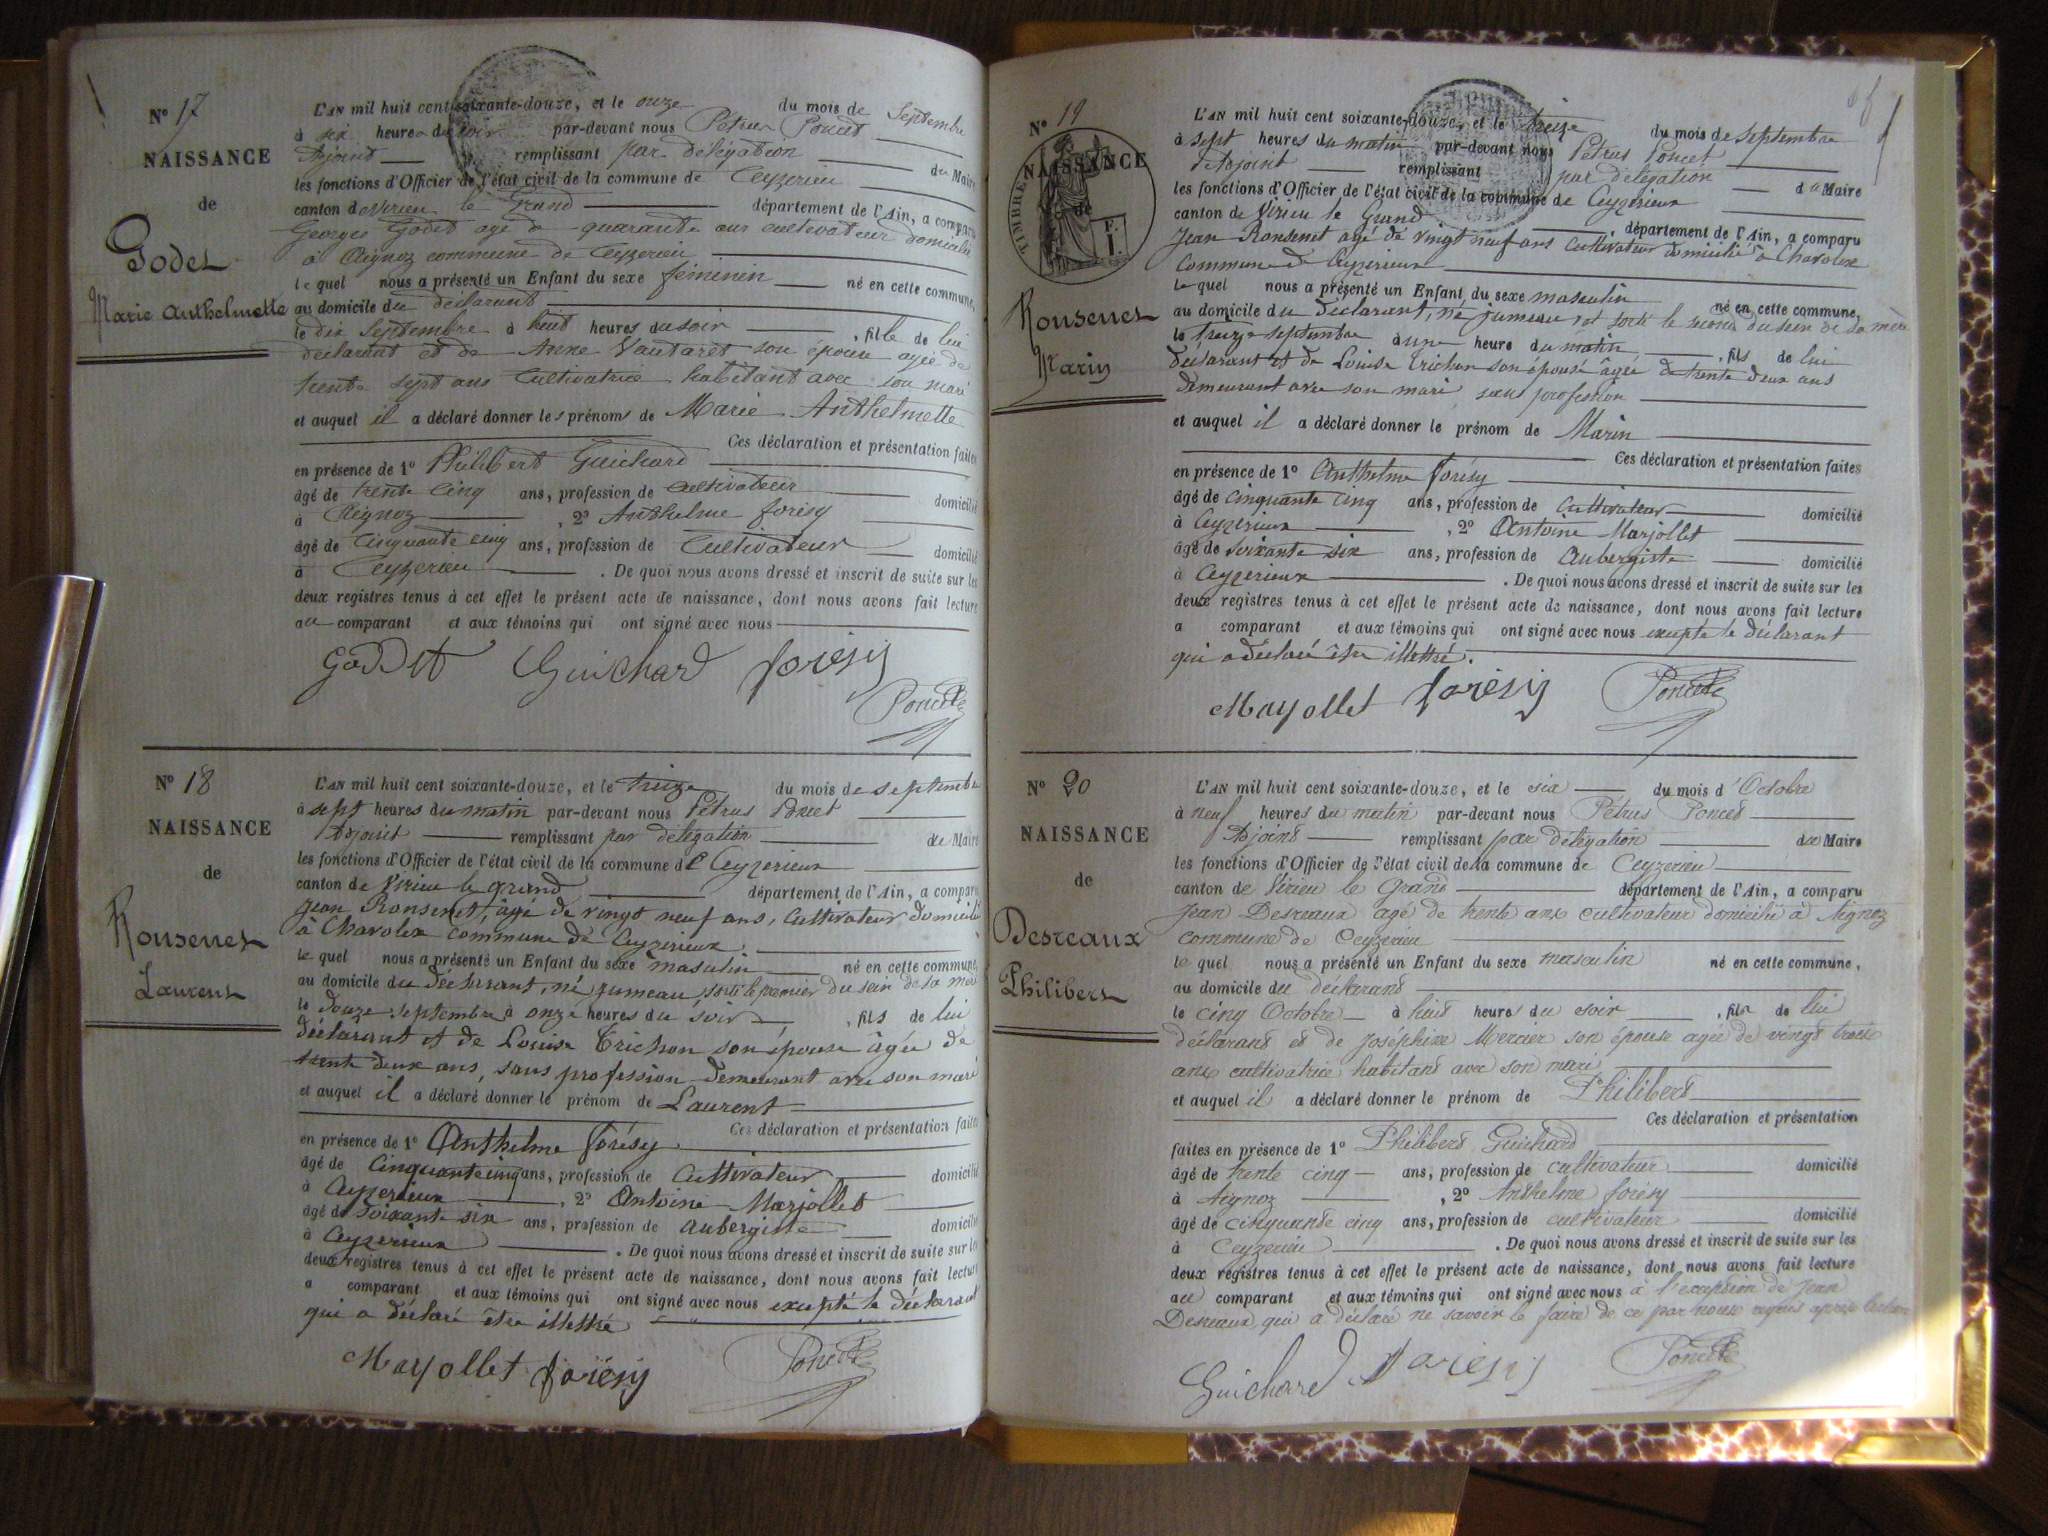 N° 17
NAISSANCE
de
Godet
Marie Anthelmette
L'AN mil huit cent soixante-douze, et le onze du mois de Septembre
à six heures du soir par-devant nous Pétrus Poncet
Adjoint remplissant par délégation du Maire
les fonctions d'Officier de l'état civil de la commune de Ceyzerieu
canton de Virieu le Grand département de l'Ain, a comparu
Georges Godet agé de quarante ans cultivateur domicilié
à Aignoz commune de Ceyzerieu
lequel nous a présenté un Enfant du sexe féminin né en cette commune,
au domicile du déclarant
le dix Septembre à huit heures du soir , fille de lui
déclarant et de Anne Vautaret son épouse agée de
trente sept ans Cultivatrice habitant avec son mari
et auquel il a déclaré donner les prénoms de Marie Anthelmette
Ces déclaration et présentation faites
en présence de 1° Philibert Guichard
âgé de trente cinq ans, profession de cultivateur domicilié
à Aignoz , 2° Anthelme forésy
âgé de Cinquante cinq ans, profession de Cultivateur domicilié
à Ceyzerieu . De quoi nous avons dressé et inscrit de suite sur les
deux registres tenus à cet effet le présent acte de naissance, dont nous avons fait lecture
au comparant et aux témoins qui ont signé avec nous
Godet Guichard forésy
Poncet
N° 18
NAISSANCE
de
Ronsenet
Laurent
L'AN mil huit cent soixante-douze, et le treize du mois de septembre
à sept heures du matin par-devant nous Pétrus Poncet
Adjoint remplissant par délégation du Maire
les fonctions d'Officier de l'état civil de la commune de Ceyzerieux
canton de Virieu le grand département de l'Ain, a comparu
Jean Ronsenet, âgé de vingt neuf ans, Cultivateur domicilié
à Chavolex commune de Ceyzerieux
le quel nous a présenté un Enfant du sexe masculin né en cette commune,
au domicile du déclarant, né jumeau, sorti le premier du sein de sa mère
le douze septembre à onze heures du soir , fils de lui
déclarant et de Louise Trichon son épouse âgée de
trente deux ans, sans profession demeurant avec son mari
et auquel il a déclaré donner le prénom de Laurent
Ces déclaration et présentation faites
en présence de 1° Anthelme forésy
âgé de Cinquante cinq ans, profession de Cultivateur domicilié
à Ceyzerieux , 2° Antoine Marjollet
âgé de soixante six ans, profession de aubergiste domicilié
à Ceyzerieux . De quoi nous avons dressé et inscrit de suite sur les
deux registres tenus à cet effet le présent acte de naissance, dont nous avons fait lecture
a comparant et aux témoins qui ont signé avec nous excepté le déclarant
qui a déclaré être illettré
Marjollet forésy Poncet
N° 19
NAISSANCE
de
TIMBRE
F.
I.
Ronsenet
Marin
L'AN mil huit cent soixante-douze, et le treize du mois de septembre
à sept heures du matin par-devant nous Pétrus Poncet
Adjoint remplissant par délégation du Maire
les fonctions d'Officier de l'état civil de la commune de Ceyzerieux
canton de Virieu le Grand département de l'Ain, a comparu
Jean Ronsenet agé de vingt neuf ans Cultivateur domicilié à Chavolex
Commune de Ceyzerieux
le quel nous a présenté un Enfant du sexe masculin né en cette commune,
au domicile du déclarant, né jumeau et sorti le second du sein de sa mère
le treize septembre à une heure du matin , fils de lui
déclarant et de Louise Trichon son épouse âgée de trente deux ans
demeurant avec son mari sans profession
et auquel il a déclaré donner le prénom de Marin
Ces déclaration et présentation faites
en présence de 1° Anthelme forésy
âgé de cinquante cinq ans, profession de cultivateur domicilié
à Ceyzerieux , 2° Antoine Marjollet
âgé de soixante six ans, profession de Aubergiste domicilié
à Ceyzerieux . De quoi nous avons dressé et inscrit de suite sur les
deux registres tenus à cet effet le présent acte de naissance, dont nous avons fait lecture
a comparant et aux témoins qui ont signé avec nous excepté le déclarant
qui a déclaré être illettré.
Marjollet forésy Poncet
N° 20
NAISSANCE
de
Desreaux
Philibert
L'AN mil huit cent soixante-douze, et le six du mois d'Octobre
à neuf heures du matin par-devant nous Pétrus Poncet
Adjoint remplissant par délégation du Maire
les fonctions d'Officier de l'état civil de la commune de Ceyzerieu
canton de Virieu le Grand département de l'Ain, a comparu
Jean Desreaux agé de trente ans cultivateur domicilié à Aignoz
commune de Ceyzerieu
le quel nous a présenté un Enfant du sexe masculin né en cette commune,
au domicile du déclarant
le cinq Octobre à huit heures du soir , fils de lui
déclarant et de Joséphine Mercier son épouse agée de vingt trois
ans cultivatrice habitant avec son mari
et auquel il a déclaré donner le prénom de Philibert
Ces déclaration et présentation
faites en présence de 1° Philibert Guichard
âgé de trente cinq ans, profession de cultivateur domicilié
à Aignoz , 2° Anthelme forésy
âgé de cinquante cinq ans, profession de cultivateur domicilié
à Ceyzerieu . De quoi nous avons dressé et inscrit de suite sur les
deux registres tenus à cet effet le présent acte de naissance, dont nous avons fait lecture
au comparant et aux témoins qui ont signé avec nous à l'exception de Jean
Desreaux qui a déclaré ne savoir le faire de ce par nous requis après lecture
Guichard forésy Poncet